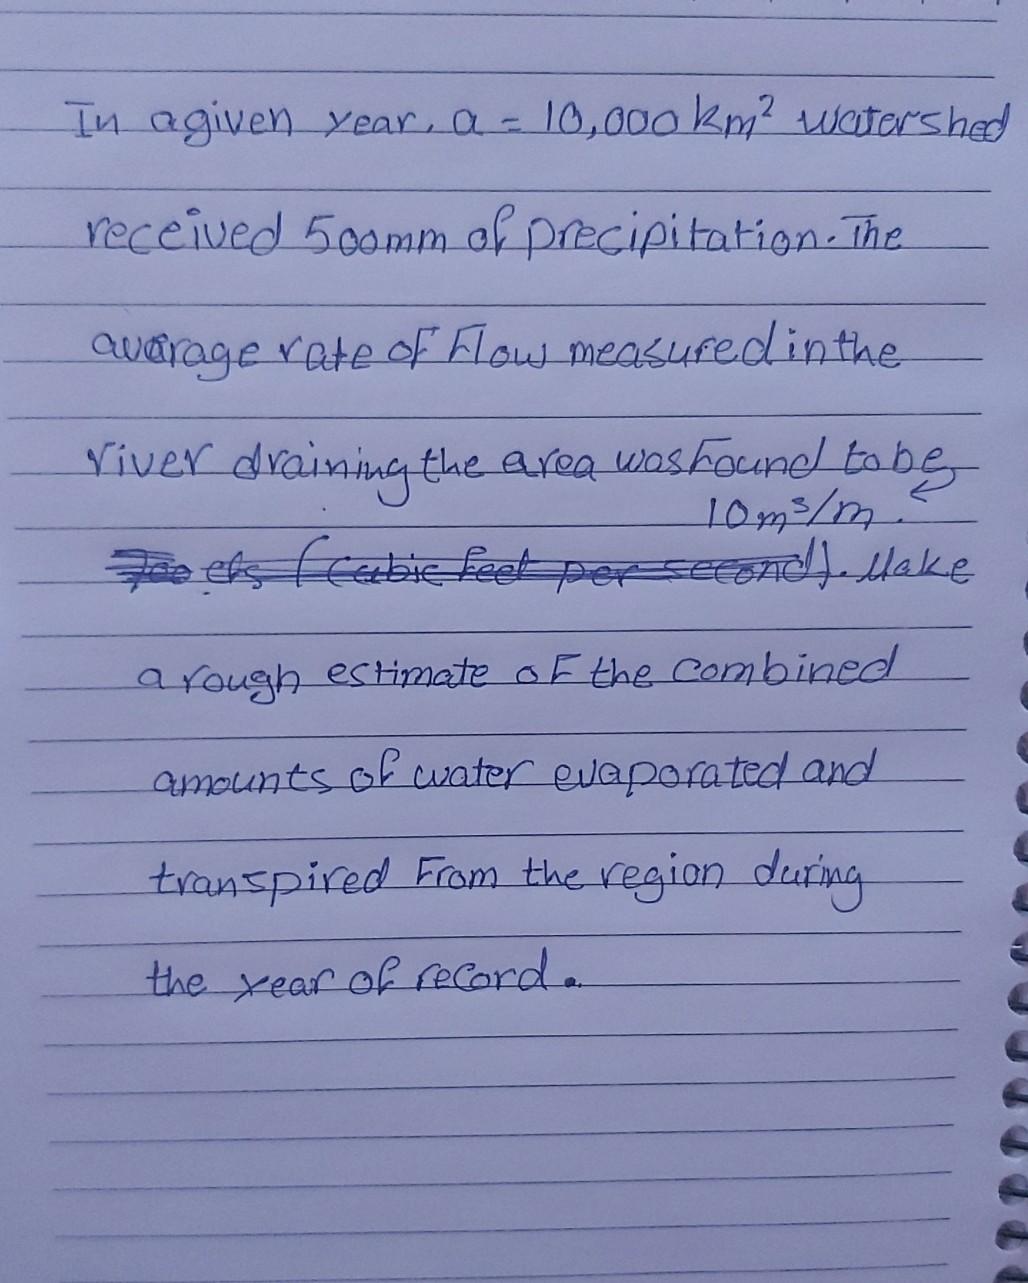 In a given year, a = 10,000 km² watershed
received 500mm of precipitation. The
average rate of flow measured in the
river draining the area was found to be
10 m³/m.
700 cfs (cubic feet per second). Make
a rough estimate of the combined
amounts of water evaporated and
transpired from the region during
the year of record.